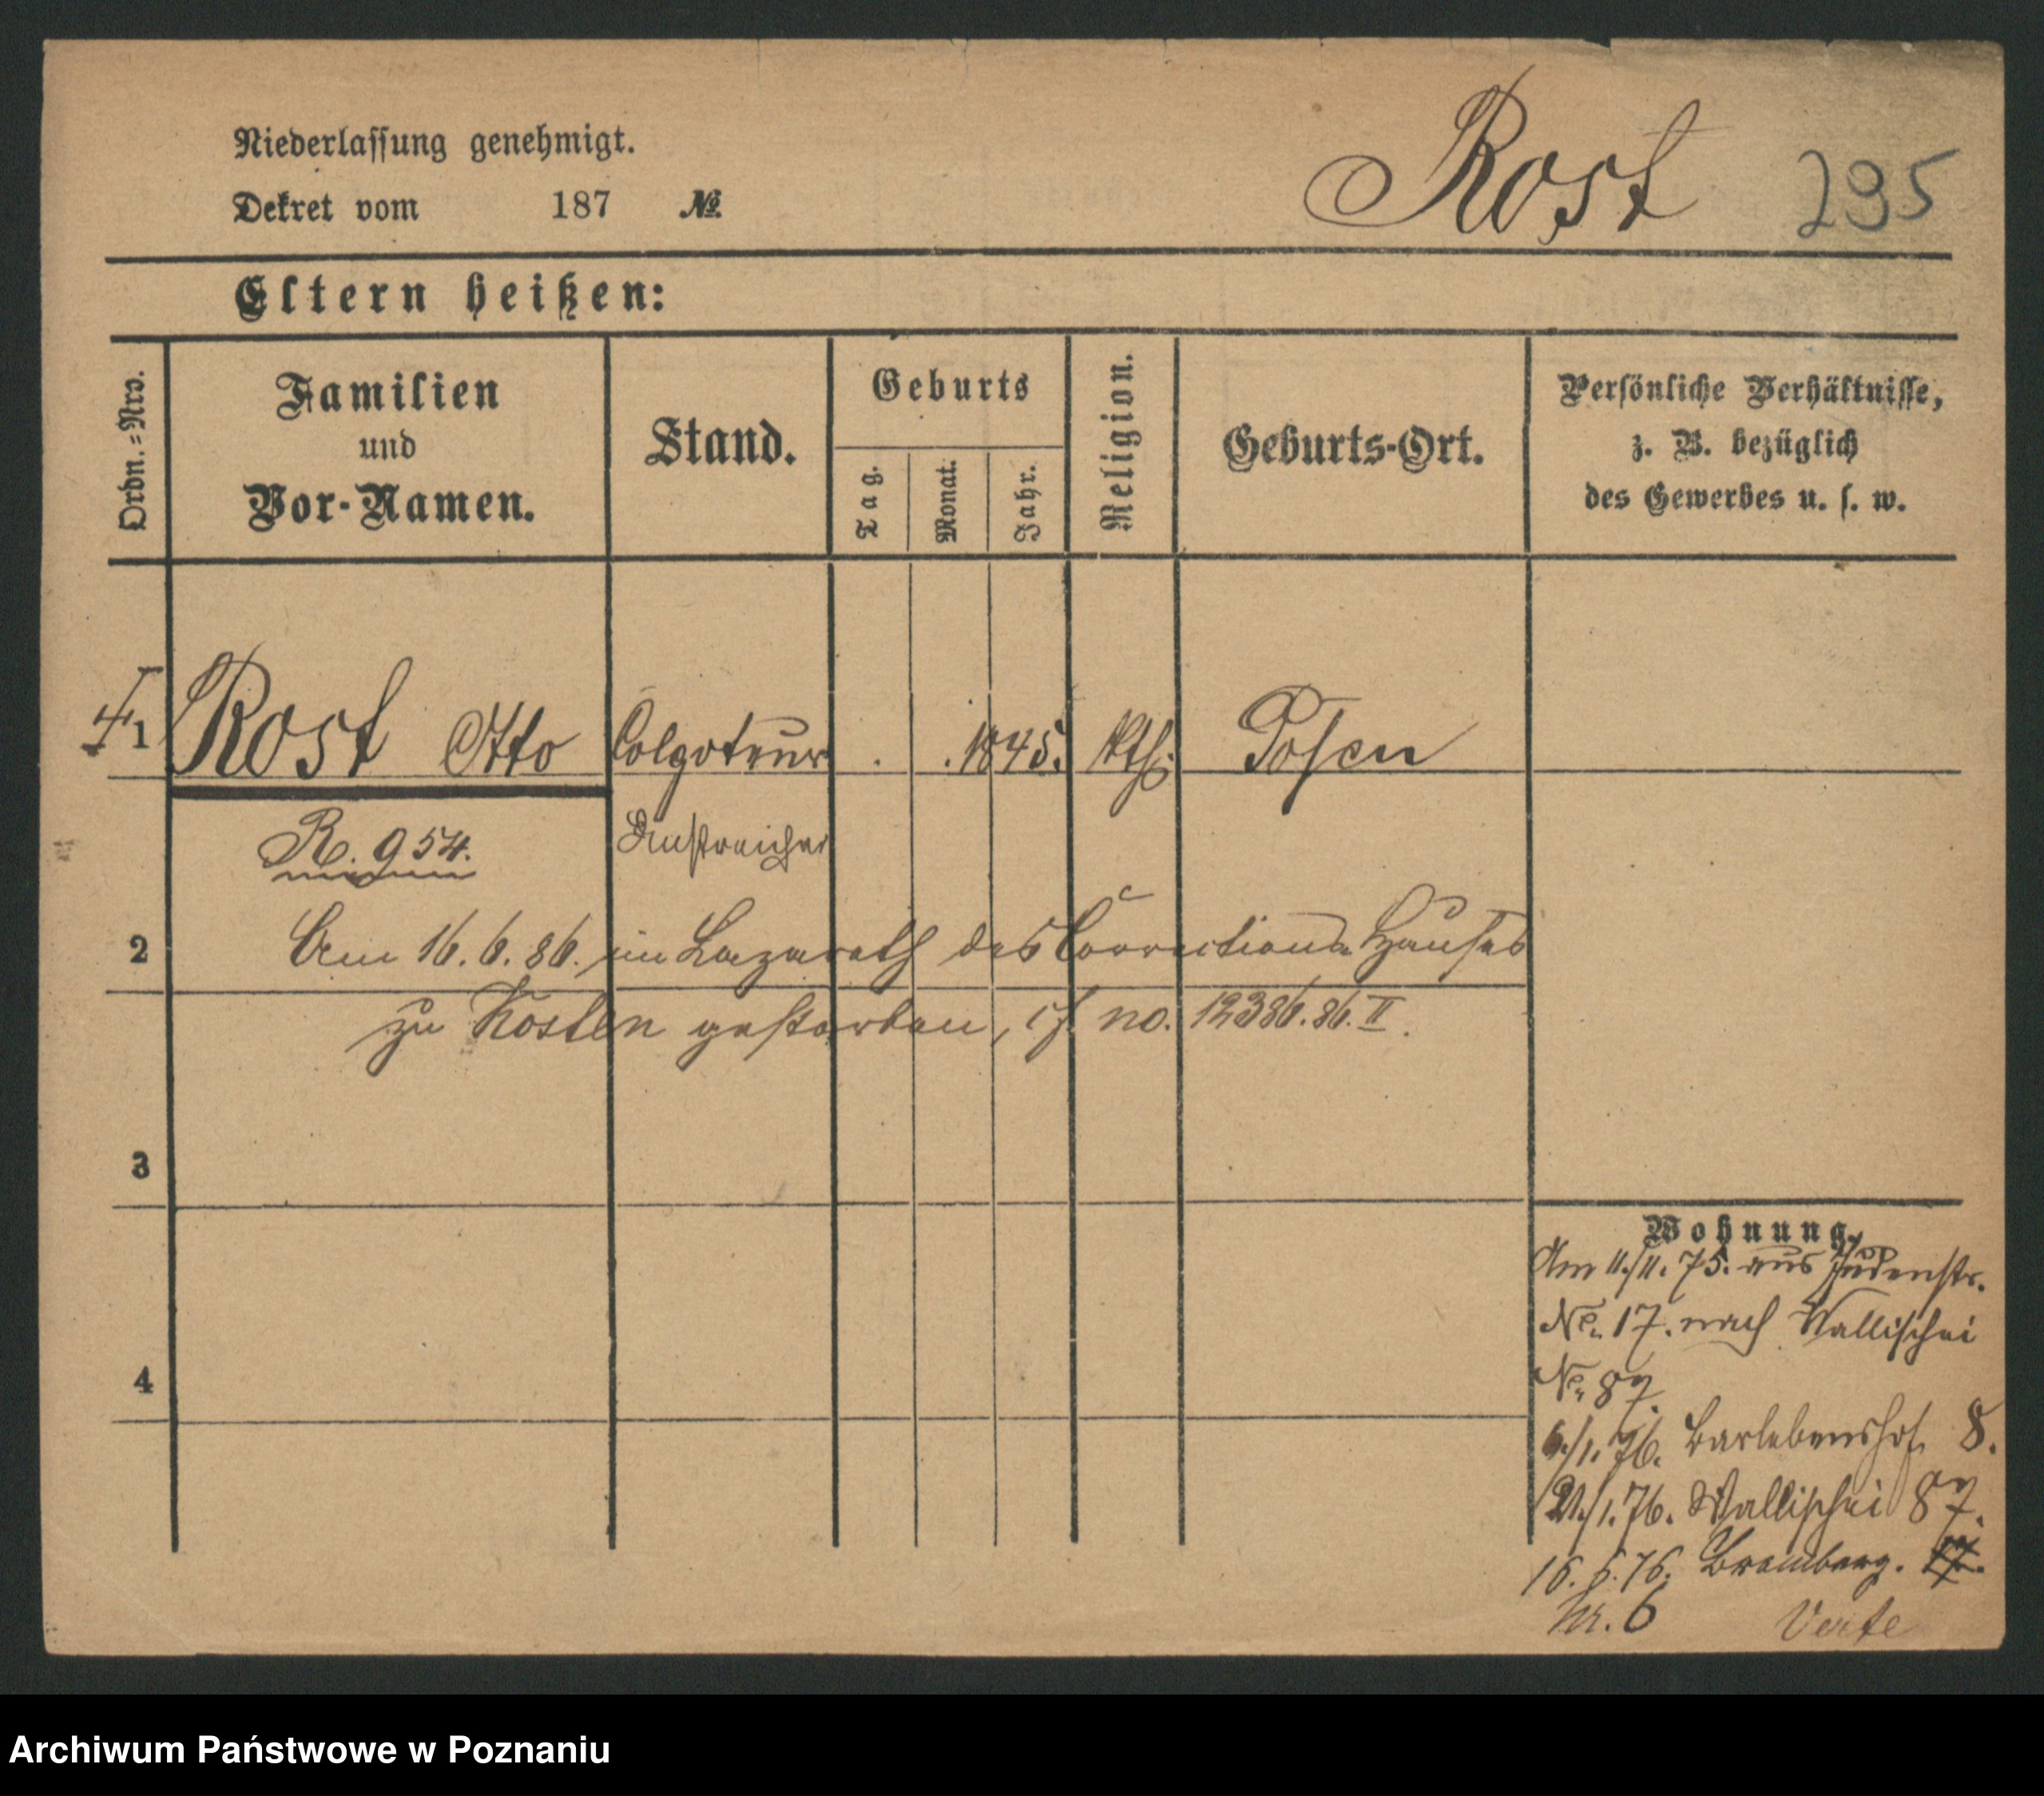 Niederlassung genehmigt.
Dekret vom 187 №
Rost 295
Eltern heißen:
Ordn.=Nro.
Familien
und
Vor-Namen.
Stand.
Geburts
Tag.
Monat.
Jahr.
Religion.
Geburts-Ort.
Persönliche Verhältnisse,
z. B. bezüglich
des Gewerbes u. s. w.
1 Rost Otto Colporteur . . 1845. kth. Posen
R. 954. Anstreicher
2 Am 16.6.86. im Lazareth des Corrections Hauses
zu Kosten gestorben, cf no. 12386.86.II.
3
4
Wohnung.
Am 11./11.75. aus Judenstr.
No. 17. nach Wallischei
No. 87.
6./1.76. Barlebenshof 8.
21./1.76. Wallischei 87.
16. 5. 76. Bromberg.
Nr. 6 Verte
Archiwum Państwowe w Poznaniu